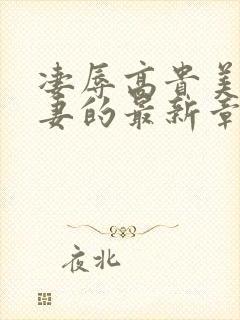 凄辱高贵美
妻的最新章
夜北